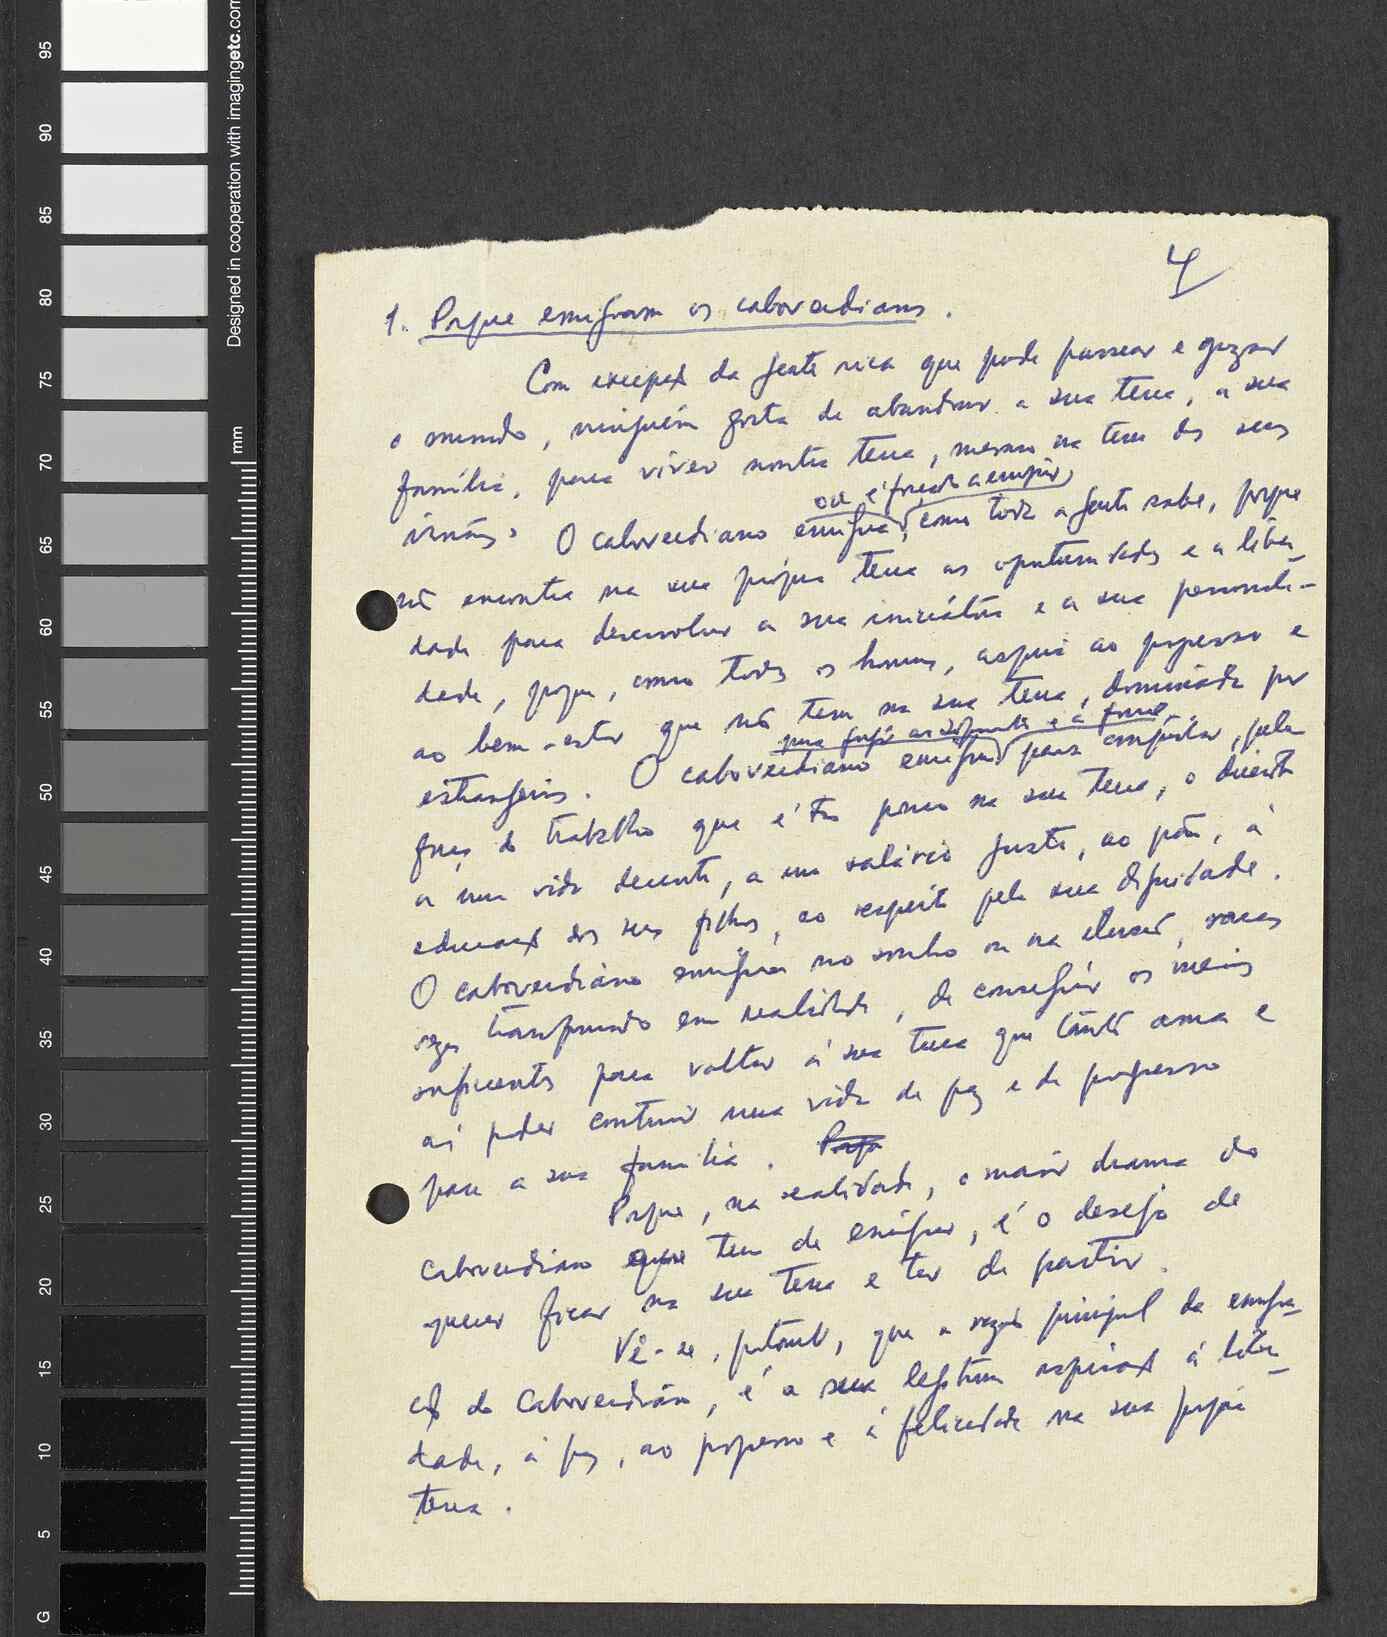 95
90
85
80
75
70
65
60
55
50
45
40
35
30
25
20
15
10
5
G
Designed in cooperation with imagingetc.com
mm
4
1. Porque emigram os caboverdianos.
Com excepção da gente rica que pode passear e gozar
o mundo, ninguém gosta de abandonar a sua terra, a sua
família, para viver noutra terra, mesmo na terra dos seus
ou é forçado a emigrar,
irmãos. O caboverdiano emigra, como toda a gente sabe, porque
não encontra na sua própria terra as oportunidades e a liber-
dade para desenvolver a sua iniciativa e a sua personali-
dade, porque, como todos os homens, aspira ao progresso e
ao bem-estar que não tem na sua terra, dominada por
para fugir ao sofrimento e à fome
estrangeiros. O caboverdiano emigra para conquistar, pela
força do trabalho que é tão pouco na sua terra, o direito
a uma vida decente, a um salário justo, ao pão, à
educação dos seus filhos, ao respeito pela sua dignidade.
O caboverdiano emigra no sonho ou na ilusão, raras
vezes transformado em realidade, de conseguir os meios
suficientes para voltar à sua terra que tanto ama e
aí poder construir uma vida de paz e de progresso
para a sua família. Porqu
Porque, na realidade, o maior drama do
caboverdiano que tem de emigrar, é o desejo de
querer ficar na sua terra e ter de partir.
Vê-se, portanto, que a razão principal da emigra-
ção do Caboverdiano, é a sua legítima aspiração à liber-
dade, à paz, ao progresso e à felicidade na sua própria
terra.